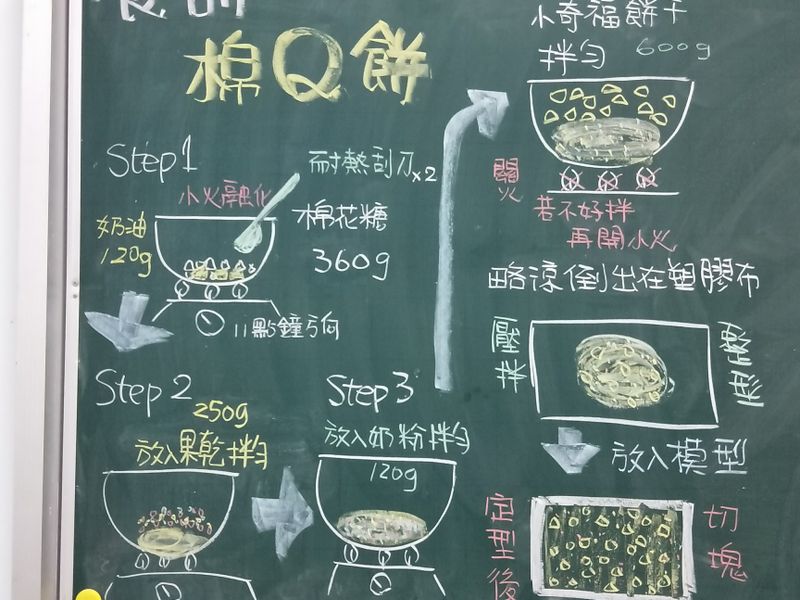 棉Q餅
Step1
小火融化
耐熱刮刀x2
奶油
120g
棉花糖
360g
11點鐘方向
Step 2
250g
放入果乾拌勻
Step 3
放入奶粉拌勻
120g
小奇福餅干
拌勻 600g
關火
若不好拌
再開小火
略涼倒出在塑膠布
壓拌
整形
放入模型
定型後
切塊